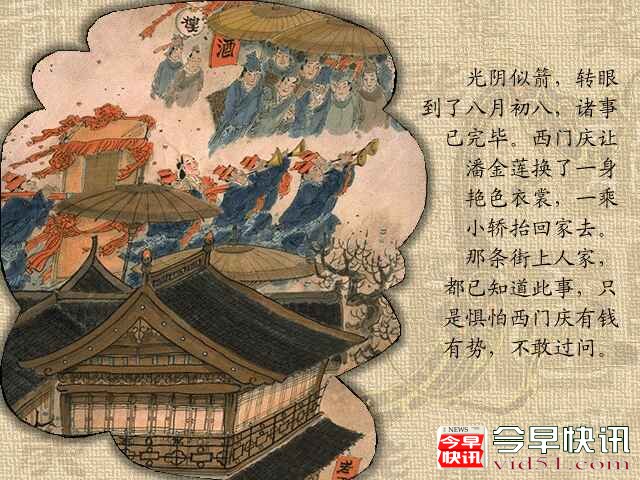 酒
光阴似箭，转眼
到了八月初八，诸事
已完毕。西门庆让
潘金莲换了一身
艳色衣裳，一乘
小轿抬回家去。
那条街上人家，
都已知道此事，只
是惧怕西门庆有钱
有势，不敢过问。
NEWS
今早
快讯
今早快讯
vid51.com